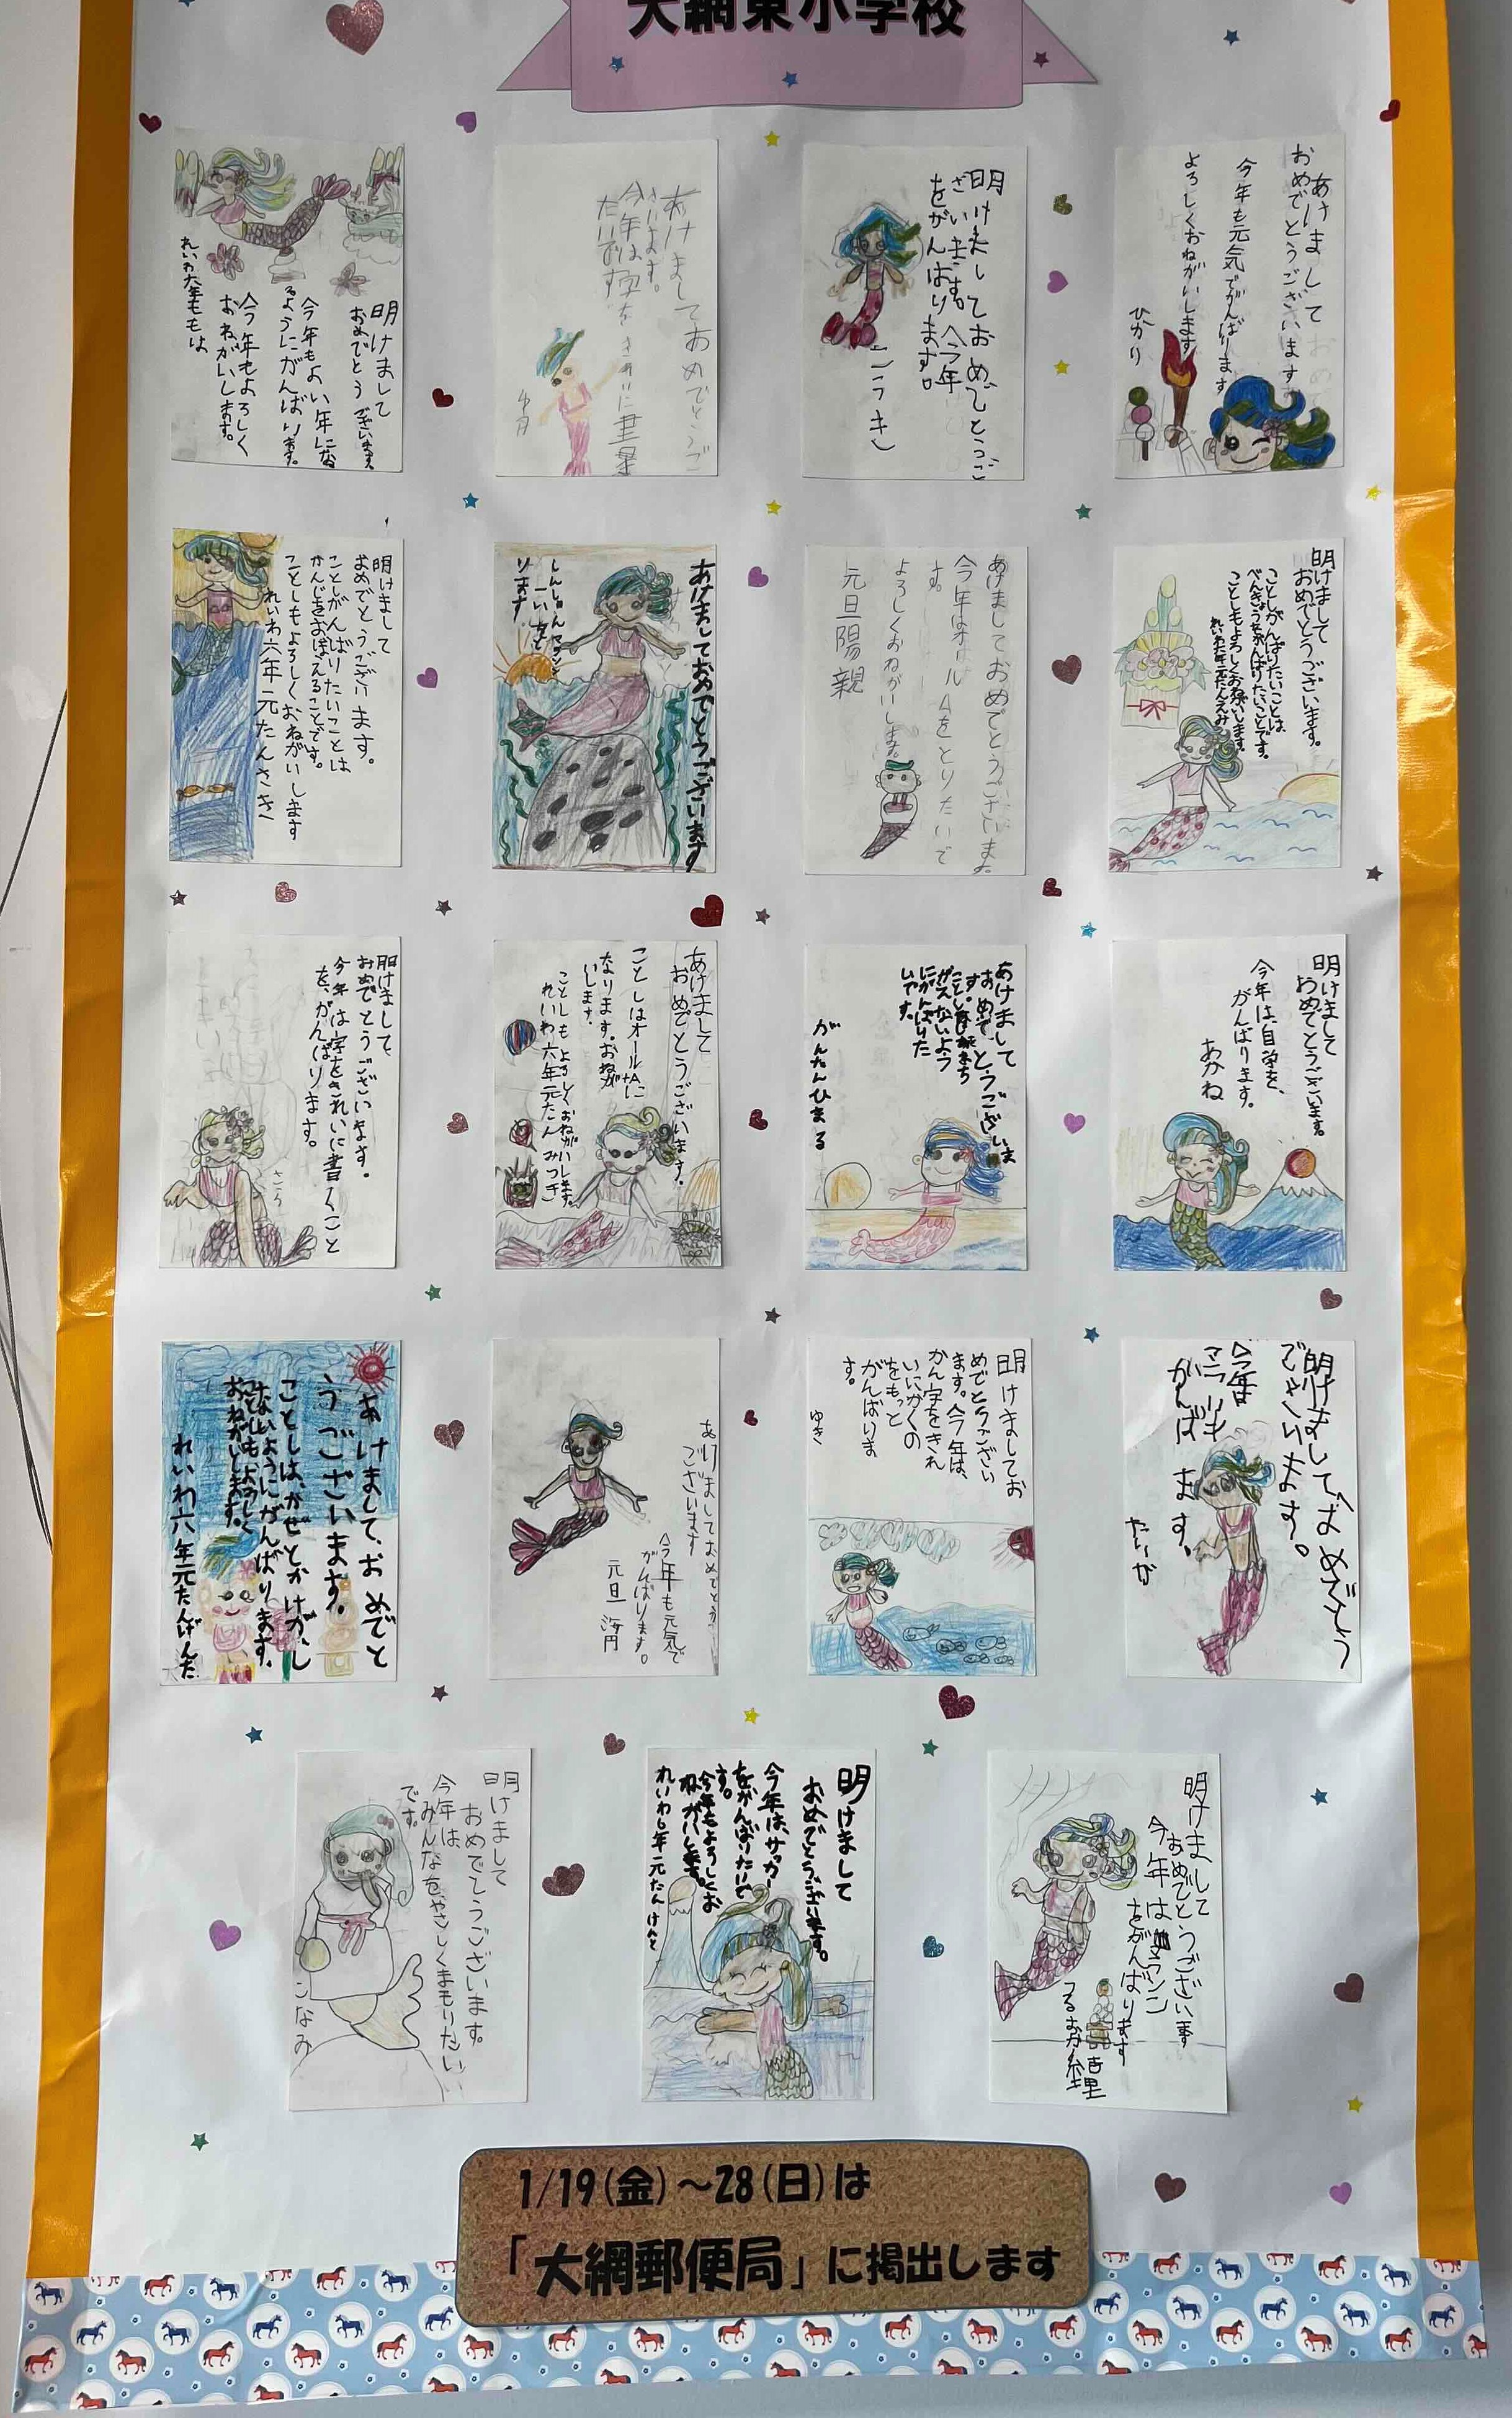 大網東小学校
明けまして
おめでとうございます。
今年もよい年にな
るようにがんばります。
今年もよろしく
おねがいします。
れいわ六年ももは
あけましておめでとうご
ざいます。
今年は字をきれいに書き
たいです
明けましておめでとうご
ざいます。今年
をがんばります。
こうき
あけまして
おめでとうございます
今年も元気でがんばります
よろしくおねがいします
ひかり
明けまして
おめでとうございます。
ことしがんばりたいことは
かんじをおぼえることです。
ことしもよろしくおねがいします
れいわ六年元たんさき
あけましておめでとうございます
あけましておめでとうございます
今年はオールAをとりたいで
す。
よろしくおねがいします
元旦陽親
明けまして
おめでとうございます。
ことしがんばりたいことは、
べんきょうをがんばりたいことです。
ことしもよろしくおねがいします。
明けまして、
おめでとうございます。
今年は字をきれいに書くこと
を、がんばります。
さくら
あけまして
おめでとうございます。
ことしはオールAに
なります。おねが
いします。
ことしもよろしくおねがいします。
れいわ六年元たん みつき
あけまして
おめでとうございま
す。
がえないよう
にがんばりた
いです。
がんたんひまる
明けまして
おめでとうございます。
今年は、自学を、
がんばります。
あかね
あけまして、おめでと
うございます。
ことしは、かぜとかけがし
ないようにがんばります、
ことしも、よろしく
おねがいします。
れいわ六年元たん
あけましておめでとう
ございます
今年も元気で
がんばります。
元旦 海円
明けましてお
めでとうござい
ます。今年は、
かん字をきれ
いにかくの
をもっと
がんばりま
す。
ゆき
明けましておめでとう
ございます。
今年は
がんば
ます。
たいが
明けまして
おめでとうございます。
今年は
みんなをやさしくまもりたい
です。
こなみ
明けまして
おめでとうございます。
今年は、サッカー
をがんばりたいで
す。
今年もよろしくお
ねがいします。
れいわ6年元たん けんと
明けまして
おめでとうございます
今年は
をがんばります
1/19(金)～28(日)は
「大網郵便局」に掲出します